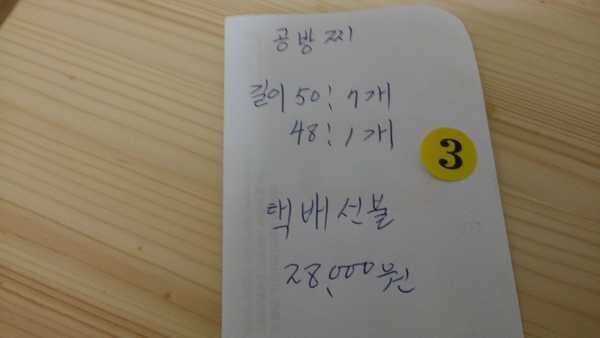 공방찌
길이 50: 7개
48: 1개
3
택배선불
28,000원